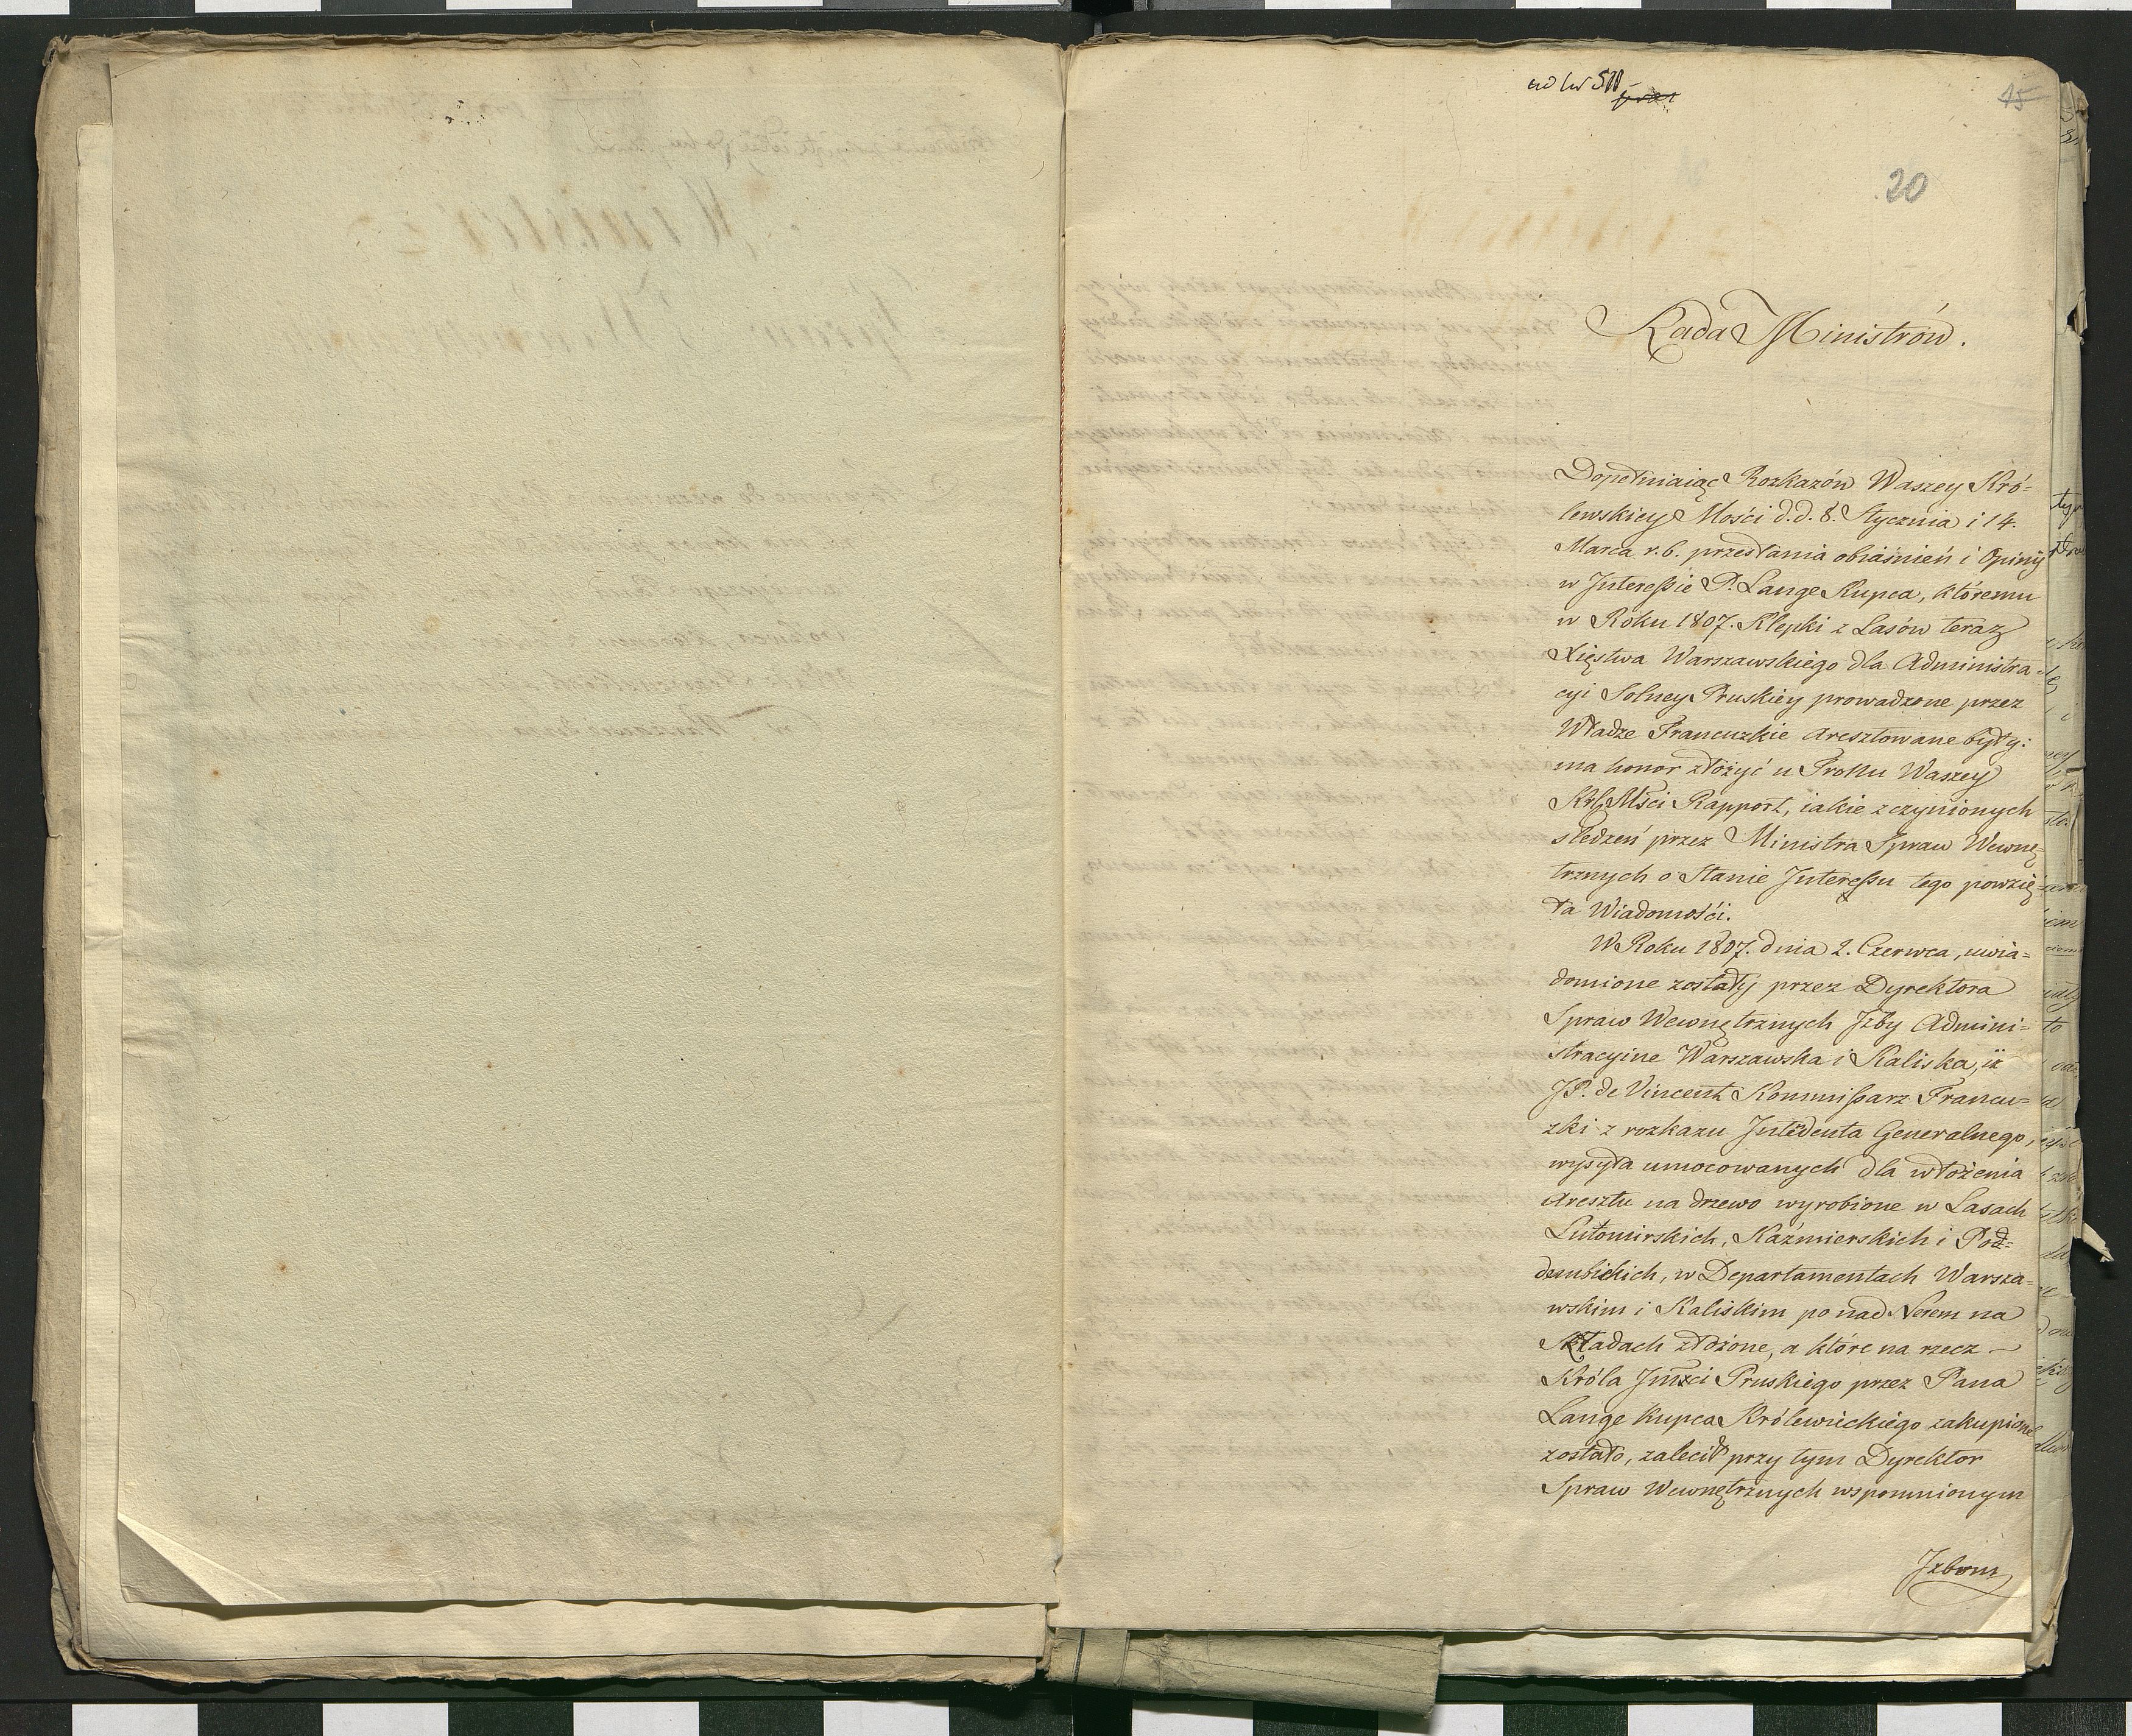 ad No 511
15
20
Rada Ministrów.
Dopełniaiąc Rozkazów Waszey Kró-
lewskiey Mości d.d. 8. Stycznia i 14.
Marca r.b. przesłania obiaśnień i Opinij
w Interessie P. Lange Kupca, któremu
w Roku 1807. Klepki z Lasów teraz
Xięstwa Warszawskiego dla Administra-
cyi Solney Pruskiey prowadzone przez
Władze Francuzkie aresztowane były:
ma honor złożyć u Tronu Waszey
Krlg Mści Rapport, iakie z czynionych
śledzeń przez Ministra Spraw Wewnę-
trznych o Stanie Interessu tego powzię-
ła Wiadomości.
W Roku 1807. dnia 2. Czerwca, uwia-
domione zostały przez Dyrektora
Spraw Wewnętrznych Izby Admini-
stracyine Warszawska i Kaliska, iż
JP. de Vincent Kommissarz Francu-
zki z rozkazu Intēdenta Generalnego,
wysyła umocowanych dla włożenia
Aresztu na drzewo wyrobione w Lasach
Lutomirskich, Kaźmierskich i Pod-
dembickich, w Departamentach Warsza-
wskim i Kaliskim po nad Nerem na
Składach złożone, a które na rzecz
Króla Jmści Pruskiego przez Pana
Lange Kupca Królewieckiego zakupione
zostało, zalecił przy tym Dyrektor
Spraw Wewnętrznych wspomnionym
Izbom